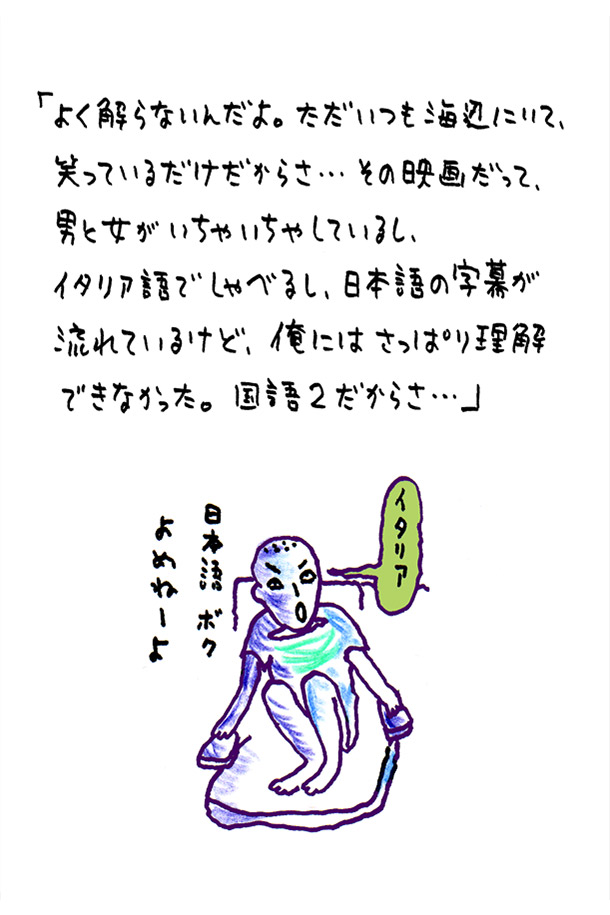 「よく解らないんだよ。ただいつも海辺にいて、
笑っているだけだからさ…その映画だって、
男と女がいちゃいちゃしているし、
イタリア語でしゃべるし、日本語の字幕が
流れているけど、俺にはさっぱり理解
できなかった。国語2だからさ…」
イタリア
日本語 ボク
よめねーよ